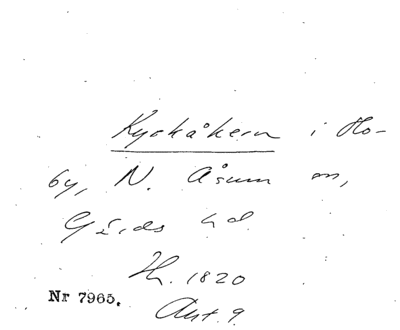 Kyrkåkern i Ho-
by, N. Åsum sn,
Gärds hd.
Th. 1820
Nr 7965. Akt. 9.